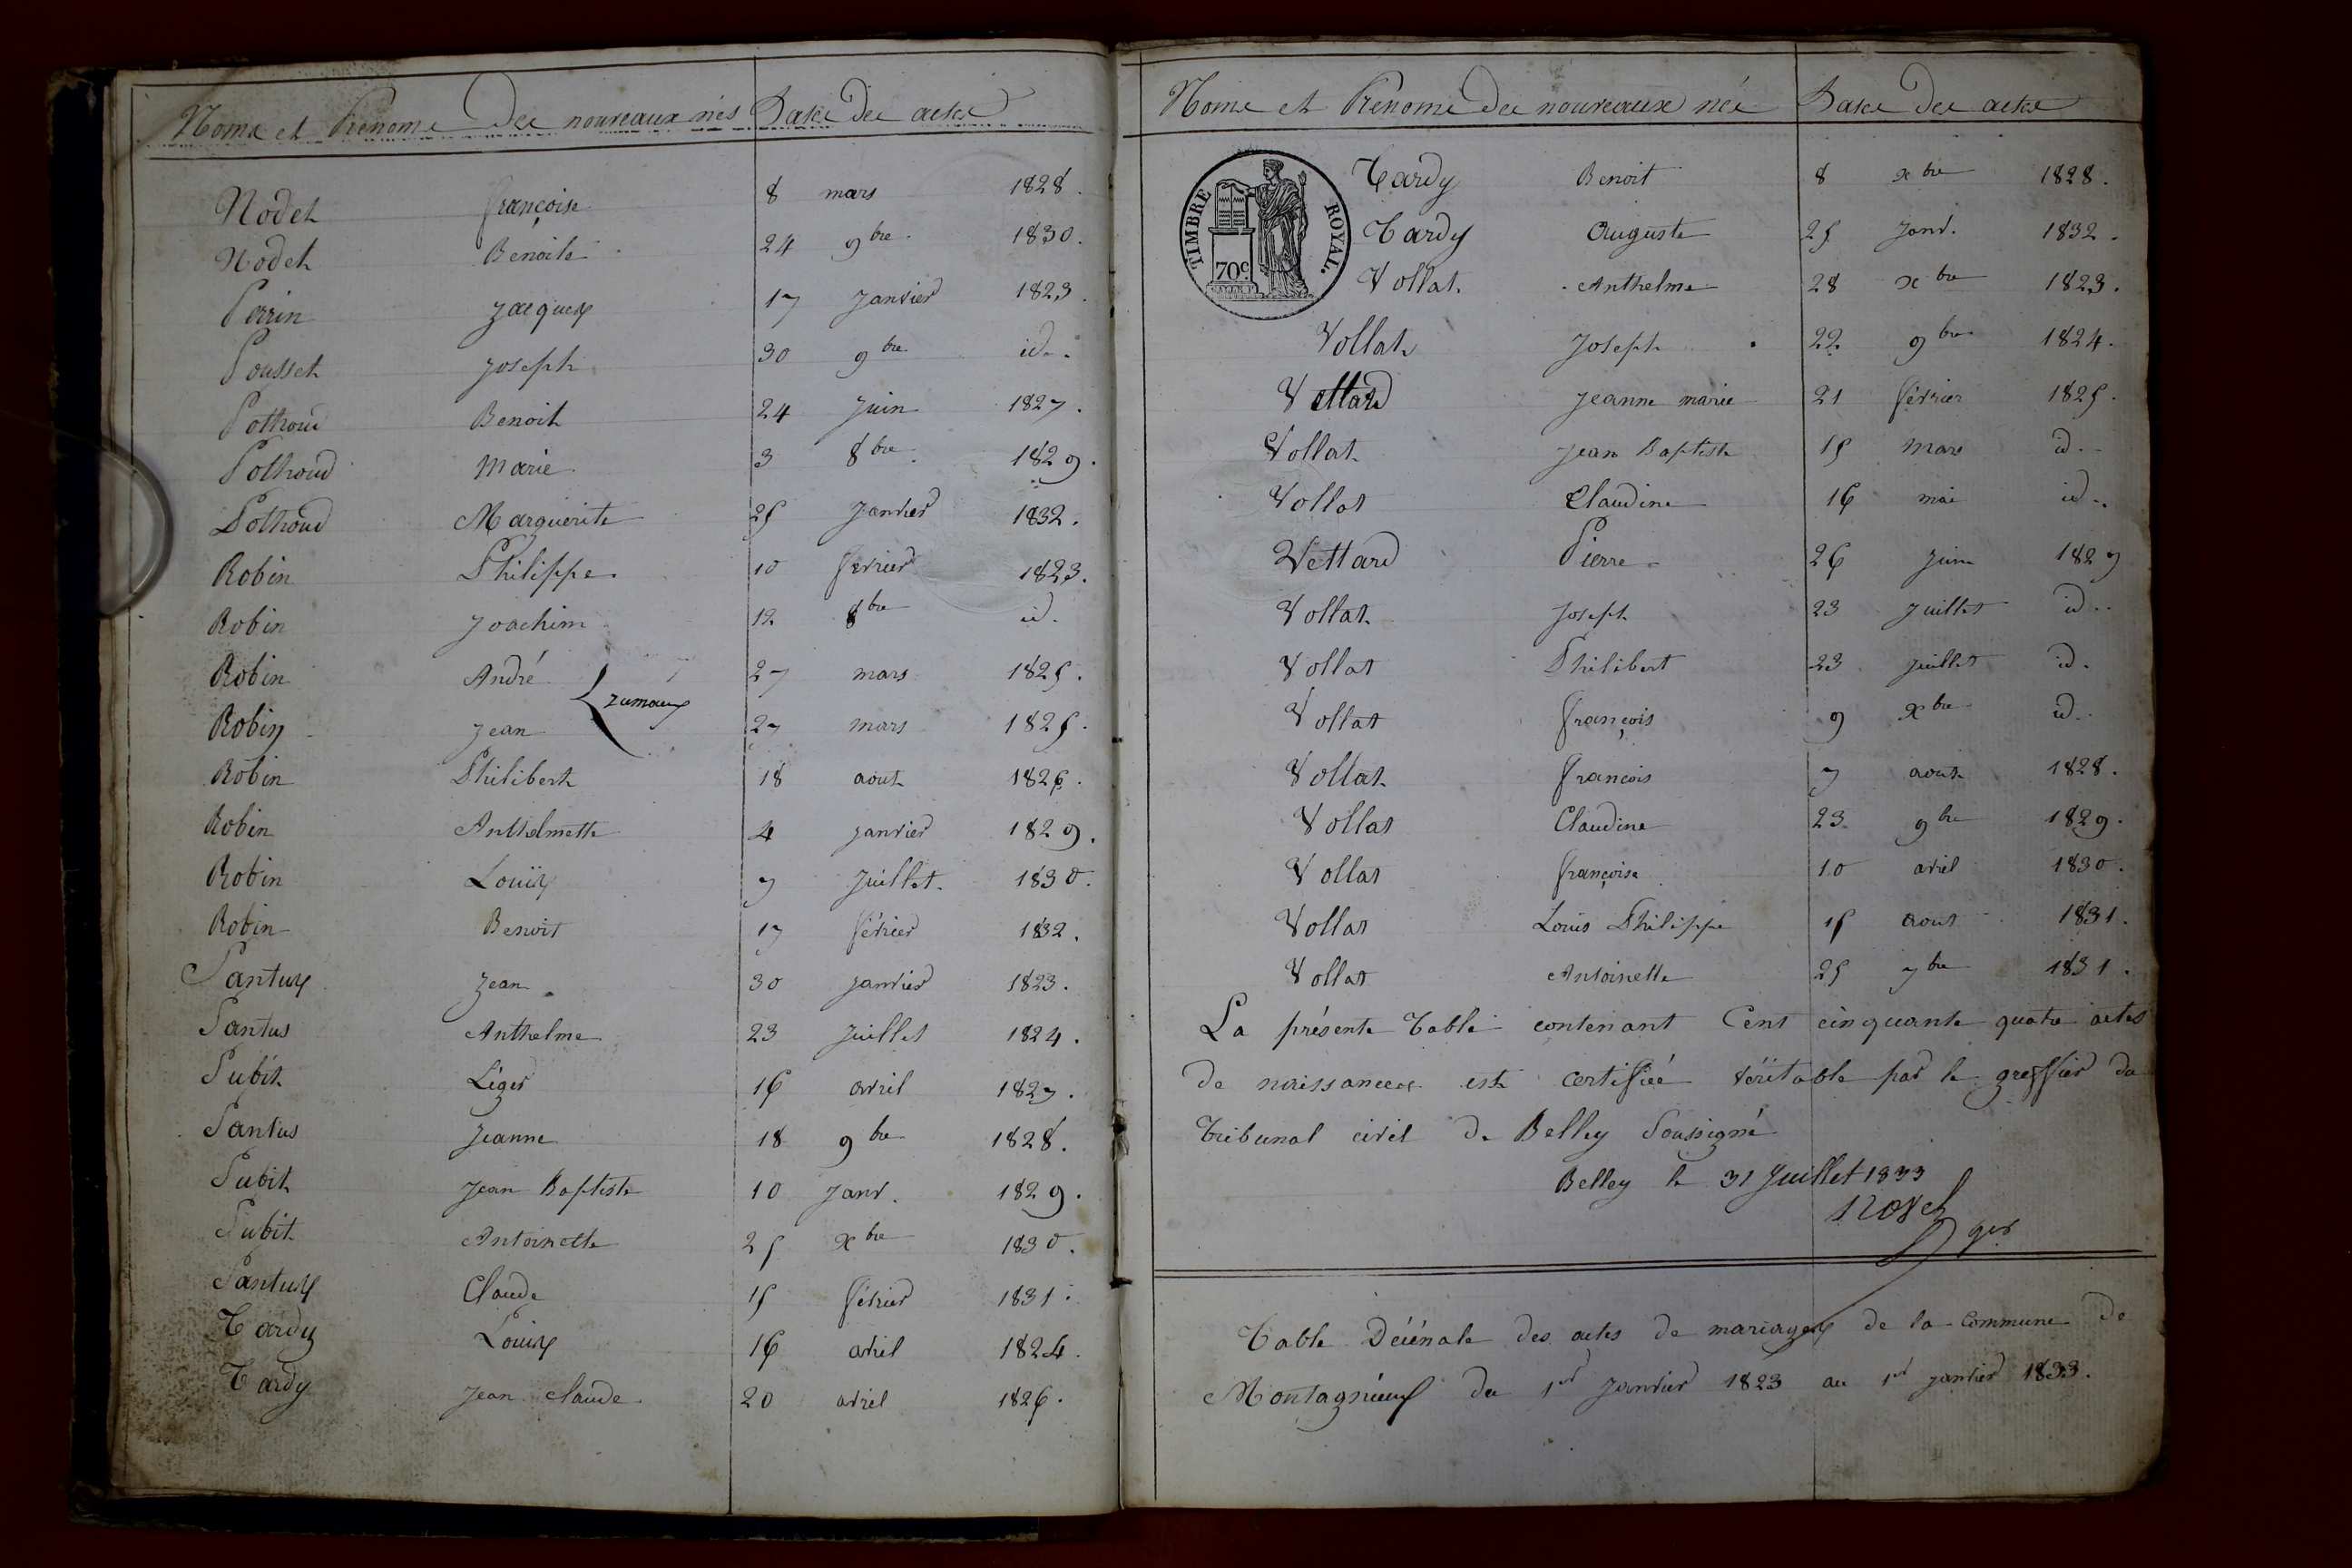 Noms et Prénoms Des nouveaux nés Dates Des actes
Nodet françoise 8 mars 1828.
Nodet Benoite 24 9bre 1830.
Perrin Jacques 17 Janvier 1823.
Pousset Joseph 30 9bre id.
Pothoud Benoit 24 Juin 1827.
Pothoud Marie 3 8bre 1829.
Pothoud Marguerite 25 Janvier 1832.
Robin Philippe 10 février 1823.
Robin Joachim 12 8bre id.
Robin André 27 mars 1825.
Jumeaux
Robin Jean 27 mars 1825.
Robin Philibert 18 aout 1826.
Robin Anthelmette 4 janvier 1829.
Robin Louis 7 Juillet 1830.
Robin Benoit 17 février 1832.
Santus Jean 30 janvier 1823.
Santus Anthelme 23 Juillet 1824.
Subit Léger 16 avril 1827.
Santus Jeanne 18 9bre 1828.
Subit Jean Baptiste 10 Janv. 1829.
Subit Antoinette 25 xbre 1830.
Santus Claude 15 février 1831.
Tardy Louis 16 avril 1824.
Tardy Jean Claude 20 avril 1826.
Noms et Prénoms des nouveaux nés Dates des actes
TIMBRE ROYAL.
70c.
Tardy Benoit 8 xbre 1828.
Tardy Auguste 25 Janv. 1832.
Vollat Anthelme 28 xbre 1823.
Vollat Joseph 22 9bre 1824.
Vettard Jeanne marie 21 février 1825.
Vollat Jean Baptiste 15 Mars id.
Vollat Claudine 16 mai id.
Vettard Pierre 26 Juin 1829
Vollat Joseph 23 Juillet id.
Vollat Philibert 23 juillet id.
Vollat françois 9 xbre id.
Vollat françois 7 aout 1828.
Vollat Claudine 23 9bre 1829.
Vollat françoise 10 avril 1830.
Vollat Louis Philippe 15 aout 1831.
Vollat Antoinette 25 7bre 1831.
La présente Table contenant Cent cinquante quatre actes
de naissances est certifiée véritable par le greffier du
Tribunal civil de Belley Soussigné
Belley le 31 Juillet 1833
ger
Table Décénale des actes de mariages de la Commune de
Montagnieux du 1er Janvier 1823 au 1er janvier 1833.